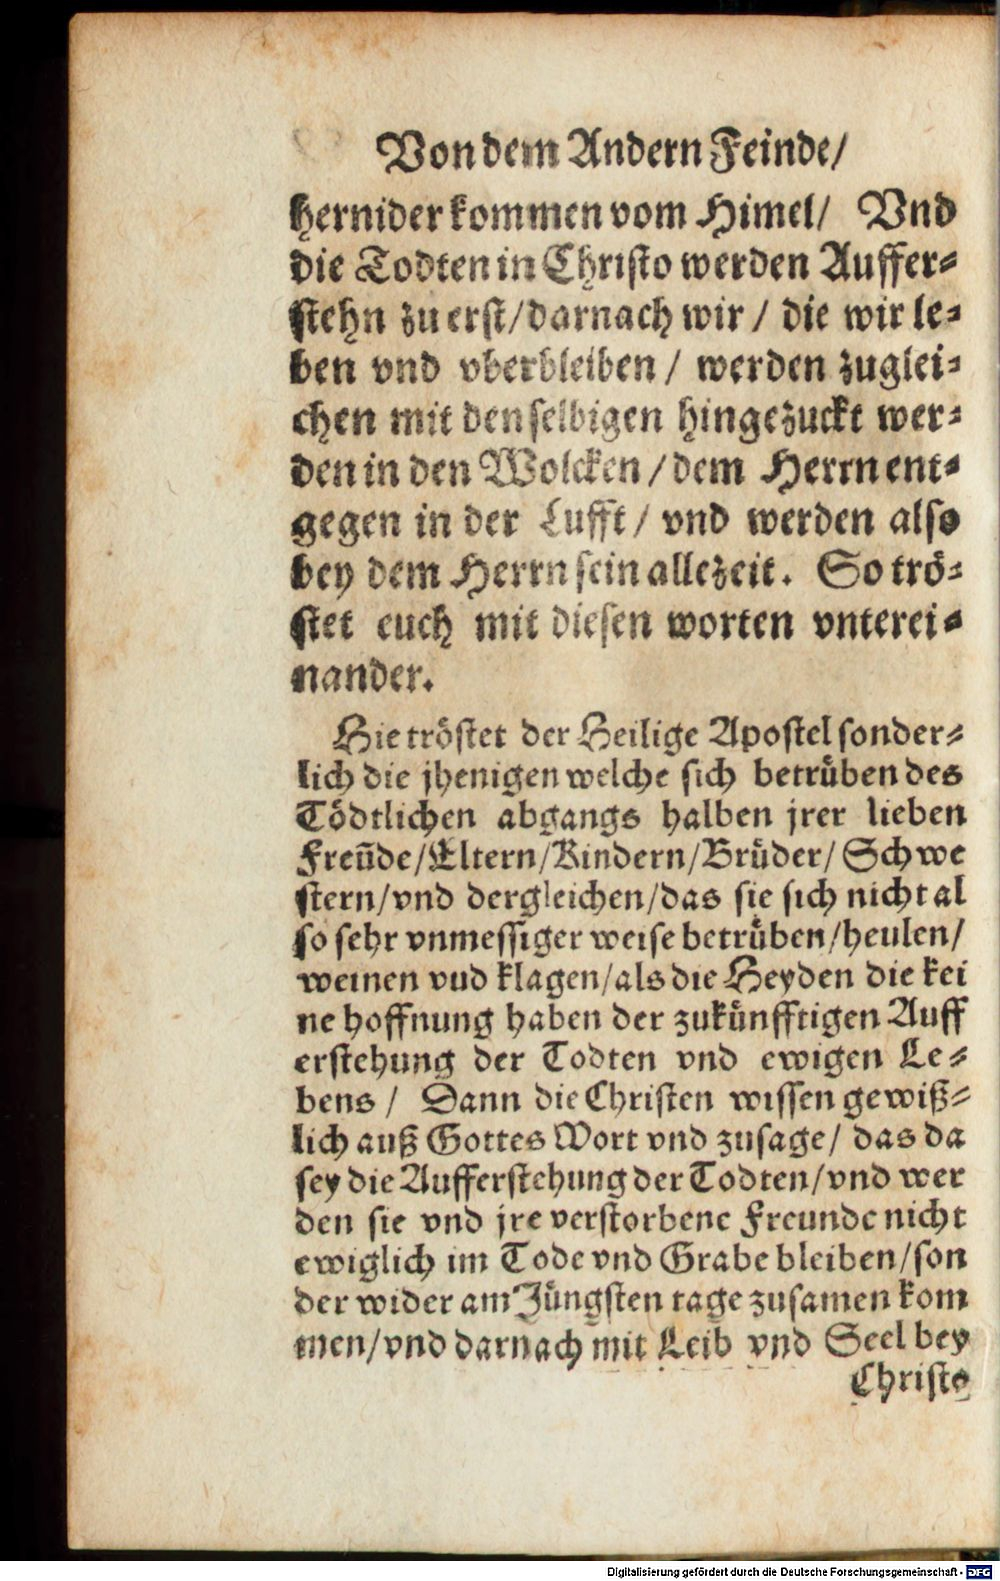 Von dem Andern Feinde/
hernider kommen vom Himel/ Vnd
die Todten in Christo werden Auffer-
stehn zu erst/darnach wir / die wir le-
ben vnd vberbleiben / werden zuglei-
chen mit denselbigen hingezuckt wer-
den in den Wolcken / dem Herrn ent-
gegen in der Lufft / vnd werden also
bey dem Herrn sein allezeit. So trö-
stet euch mit diesen worten vnterei-
nander.
Hie tröstet der Heilige Apostel sonder-
lich die jhenigen welche sich betrüben des
Tödtlichen abgangs halben jrer lieben
Freūde/Eltern/Kindern/Brüder/ Schwe
stern/vnd dergleichen/das sie sich nicht al
so sehr vnmessiger weise betrüben/heulen/
weinen vud klagen/als die Heyden die kei
ne hoffnung haben der zukünfftigen Auff
erstehung der Todten vnd ewigen Le-
bens / Dann die Christen wissen gewiß-
lich auß Gottes Wort vnd zusage/ das da
sey die Aufferstehung der Todten/vnd wer
den sie vnd jre verstorbene Freunde nicht
ewiglich im Tode vnd Grabe bleiben/son
der wider am Jüngsten tage zusamen kom
men/vnd darnach mit Leib vnd Seel bey
Christo
Digitalisierung gefördert durch die Deutsche Forschungsgemeinschaft - DFG